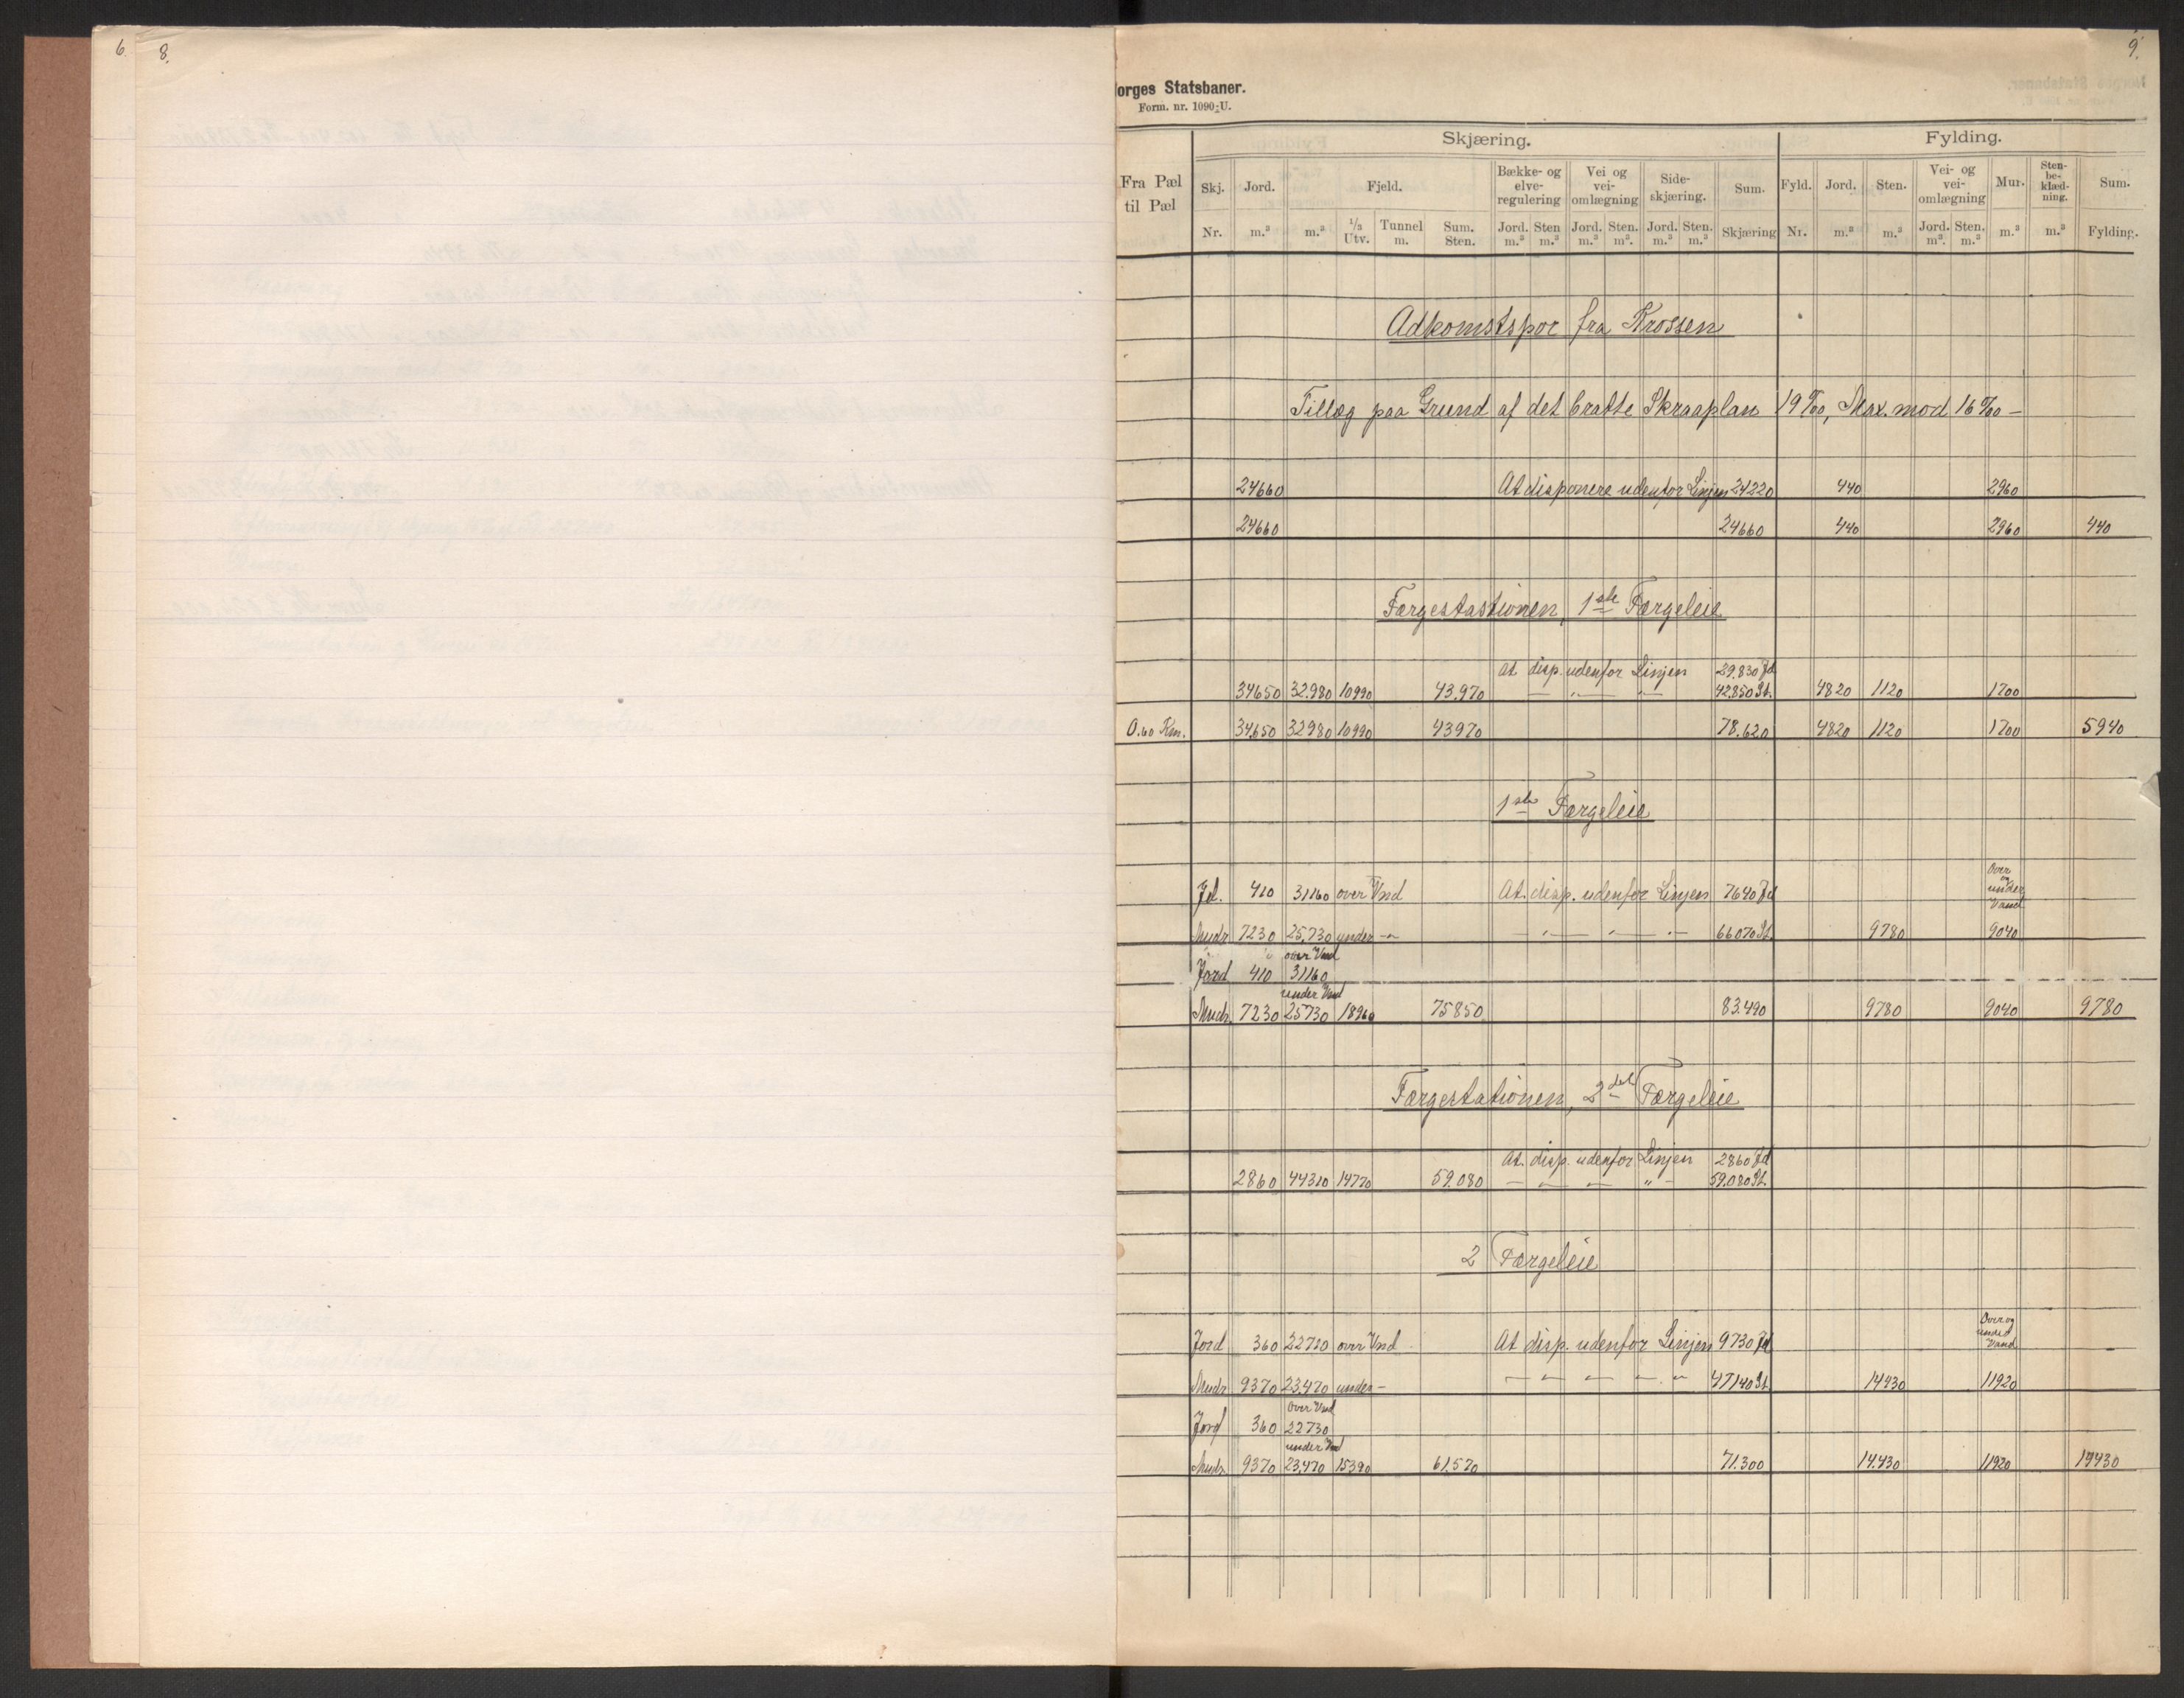 6.
8.
9.
orges Statsbaner.
Form. nr. 1090-U.
Skjæring. Fylding.
Fra Pæl til Pæl Skj. Nr. Jord. m.³ Fjeld. m.³ 1/3 Utv. Tunnel m. Sum. Sten. Bække- og elve-regulering Jord. m.³ Sten m.³ Vei og vei-omlægning Jord. m.³ Sten. m.³ Side-skjæring. Jord. m.³ Sten. m.³ Sum. Skjæring Fyld. Nr. Jord. m.³ Sten. m.³ Vei- og vei-omlægning Jord. m³. Sten. m.³ Mur. m.³ Sten-be-klæd-ning. m.³ Sum. Fylding.
Adkomstspor fra Krossen
Tillæg paa Grund af det bratte Skraaplan 19 ‰, Max. mod 16 ‰ –
24660 At disponere udenfor Linjen 24220 440 2960
24660 24660 440 2960 440
Færgestastionen, 1ste Færgeleie
At disp. udenfor Linjen 29.830 Jd
34650 32.980 10990 43.970 — „ — „ — 42.850 St. 4820 1120 1700
0.60 Km. 34.650 32980 10990 43970 78.620 4820 1120 1700 5940
1ste Færgeleie
Over og under Vand
Jd. 410 31160 over Vnd At. disp. udenfor Linjen 7640 Jd
Mudr 7230 25,730 under — „ — „ — „ — 66070 St. 9780 9040
over Vnd
Jord 410 31160
under Vnd
Mudr. 7230 25730 18960 75850 83.490 9780 9040 9780
Færgestationen, 2det Færgeleie
At. disp. udenfor Linjen 2860 Jd
2860 44310 14770 59.080 — „ — „ — 59.080 St.
2 Færgeleie
Over og under Vand
Jord 360 22720 over Vnd At disp. udenfor Linjen 9730 Jd
Mudr 9370 23.470 under — „ — „ — „ 47140 St. 14430 11920
Over Vnd
Jord 360 22730
under Vnd
Mudr. 9370 23,470 15390 61.570 71.300 14.430 11920 14430